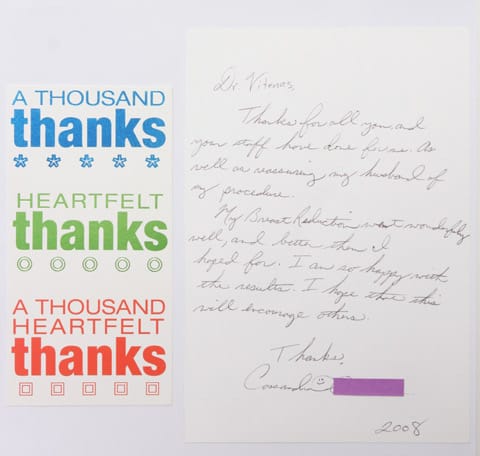 A THOUSAND
thanks
HEARTFELT
thanks
A THOUSAND
HEARTFELT
thanks
Dr. Vitenas,
Thanks for all you and
your staff have done for me. As
well as reassuring my husband of
my procedure.
My Breast Reduction went wonderfully
well, and better then I
hoped for. I am so happy with
the results. I hope that this
will encourage others.
Thanks,
Cassandra
2008